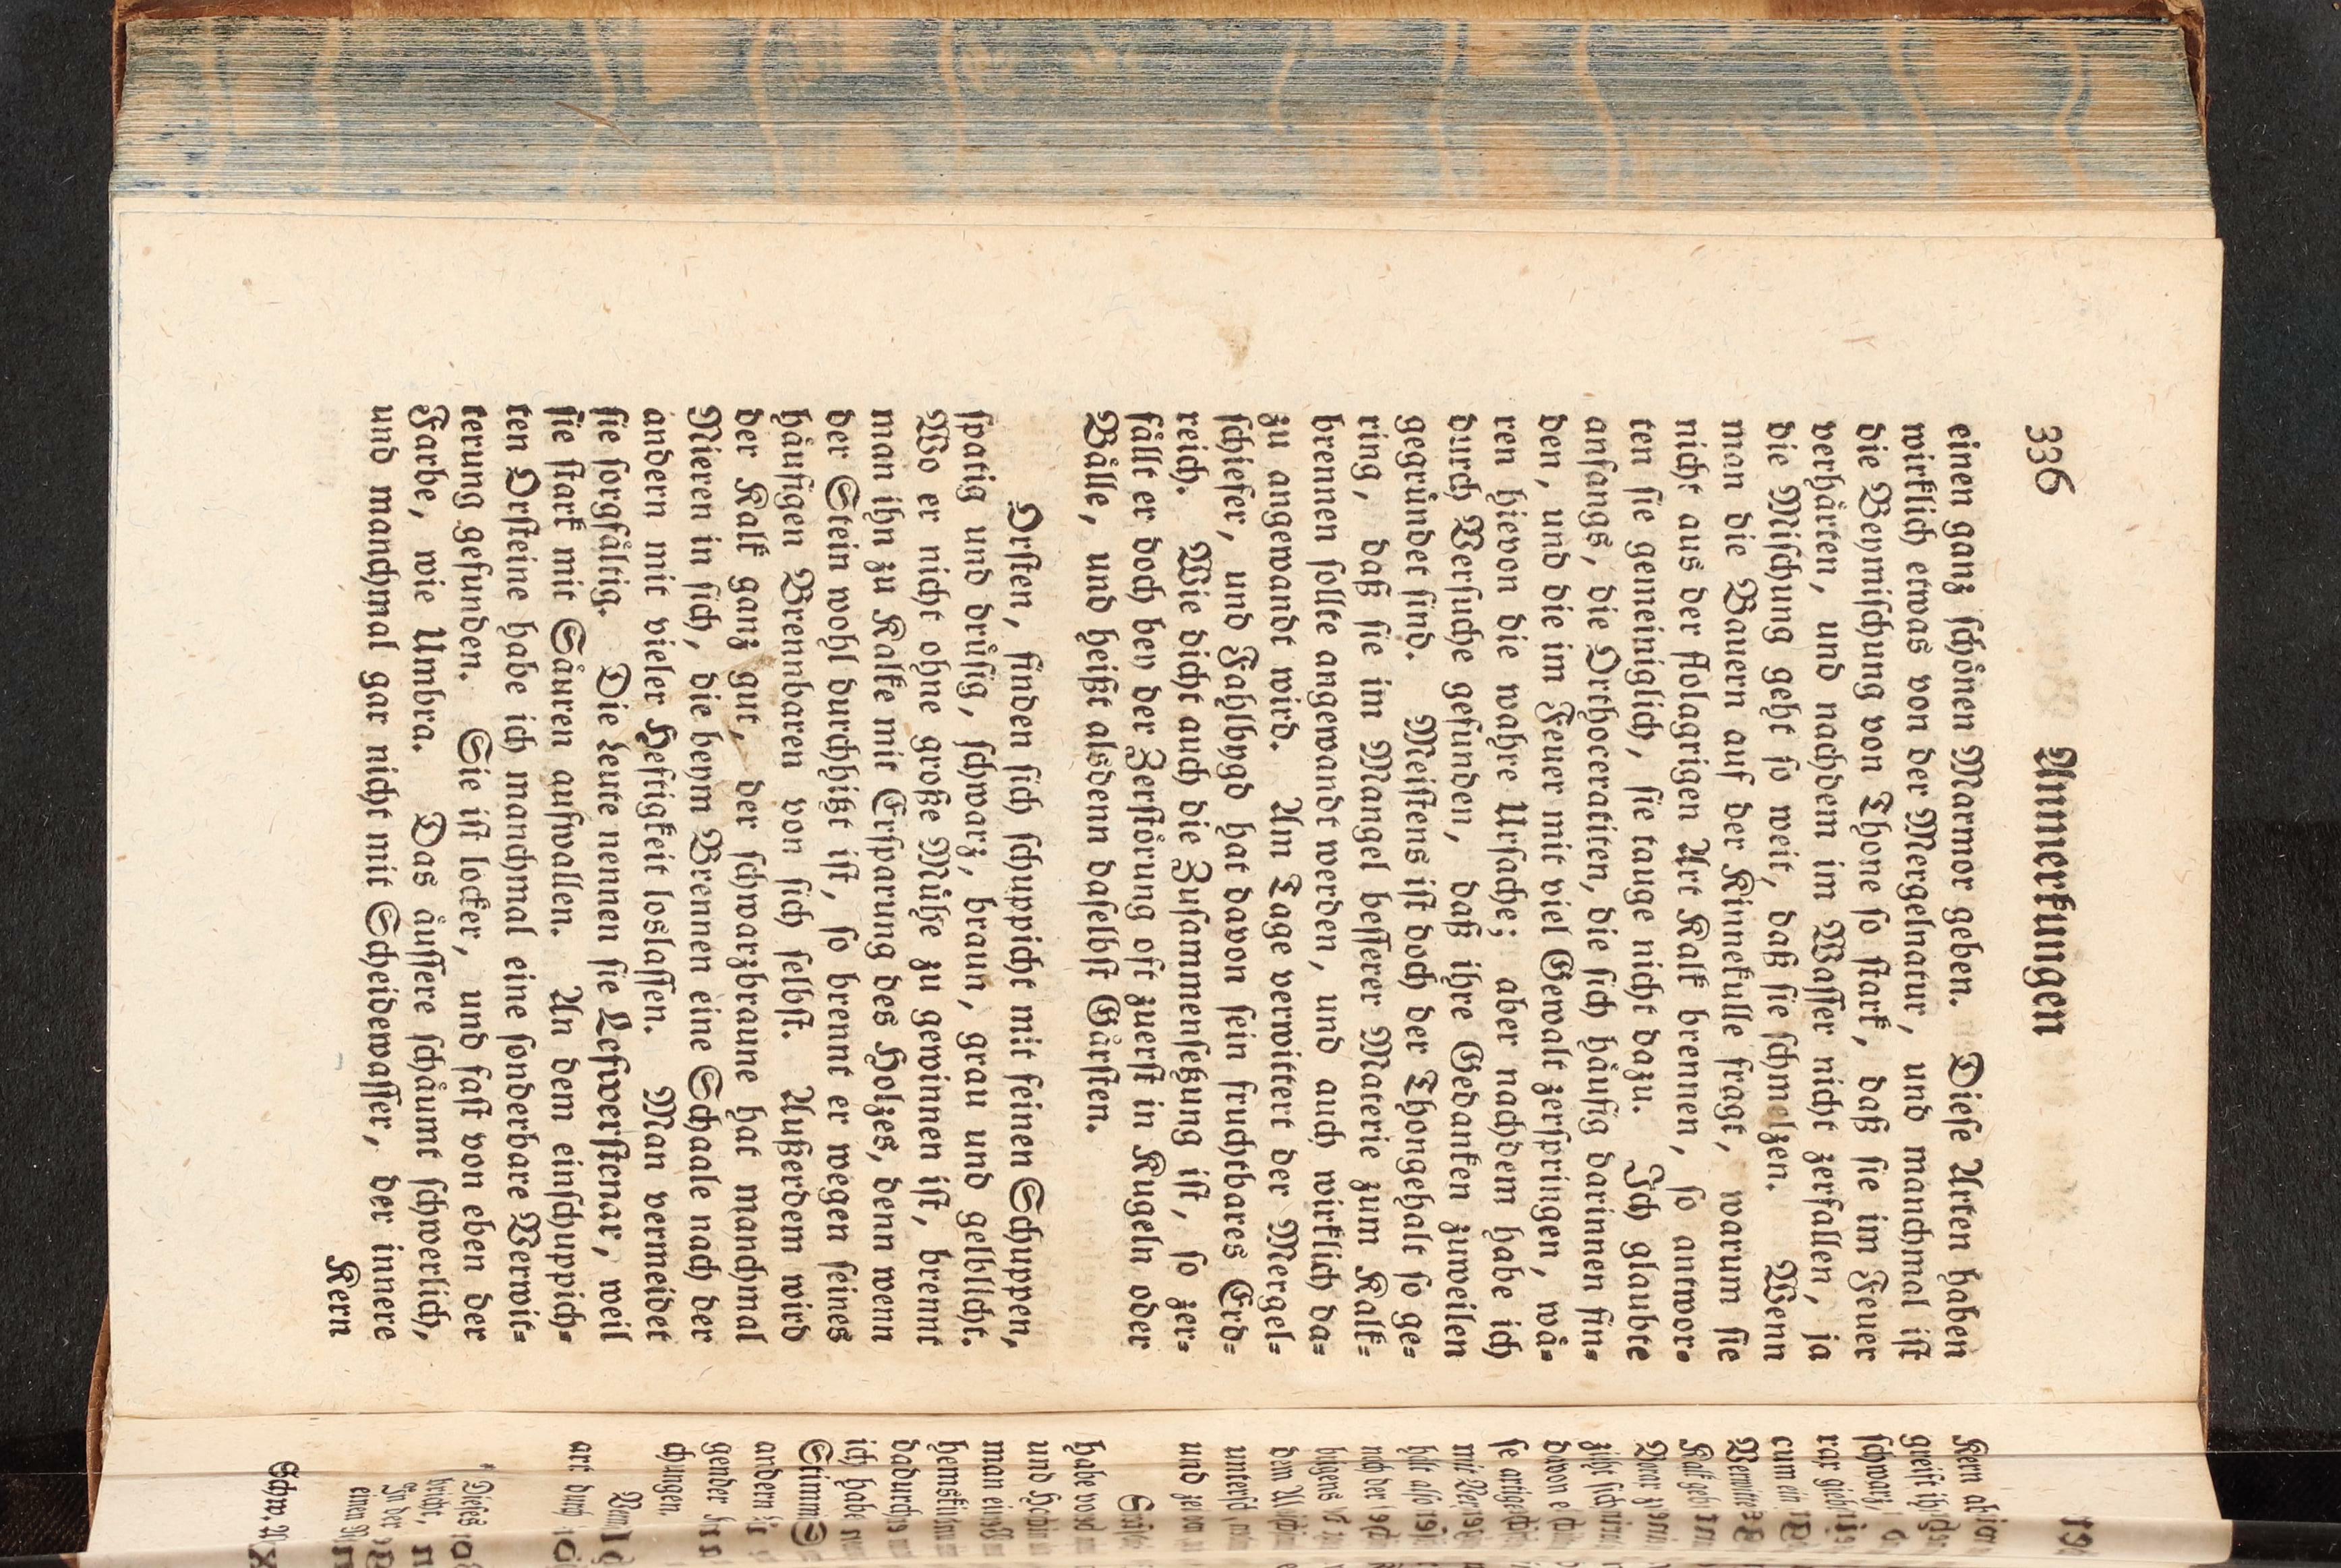 336 Anmerkungen
einen ganz schönen Marmor geben. Diese Arten haben
wirklich etwas von der Mergelnatur, und manchmal ist
die Beymischung von Thone so stark, daß sie im Feuer
verhärten, und nachdem im Wasser nicht zerfallen, ja
die Mischung geht so weit, daß sie schmelzen. Wenn
man die Bauern auf der Kinnekulle fragt, warum sie
nicht aus der flolagrigen Art Kalk brennen, so antwor-
ten sie gemeiniglich, sie tauge nicht dazu. Ich glaubte
anfangs, die Orthoceratiten, die sich häufig darinnen fin-
den, und die im Feuer mit viel Gewalt zerspringen, wä-
ren hievon die wahre Ursache; aber nachdem habe ich
durch Versuche gefunden, daß ihre Gedanken zuweilen
gegründet sind. Meistens ist doch der Thongehalt so ge-
ring, daß sie im Mangel besserer Materie zum Kalk-
brennen sollte angewandt werden, und auch wirklich da-
zu angewandt wird. Am Tage verwittert der Mergel-
schiefer, und Fahlbygd hat davon sein fruchtbares Erd-
reich. Wie dicht auch die Zusammensetzung ist, so zer-
fällt er doch bey der Zerstörung oft zuerst in Kugeln oder
Bälle, und heißt alsdenn daselbst Gärsten.
Orsten, finden sich schuppicht mit feinen Schuppen,
spatig und drüsig, schwarz, braun, grau und gelblicht.
Wo er nicht ohne große Mühe zu gewinnen ist, brennt
man ihn zu Kalke mit Ersparung des Holzes, denn wenn
der Stein wohl durchhitzt ist, so brennt er wegen seines
häufigen Brennbaren von sich selbst. Außerdem wird
der Kalk ganz gut, der schwarzbraune hat manchmal
Nieren in sich, die beym Brennen eine Schaale nach der
andern mit vieler Heftigkeit loslassen. Man vermeidet
sie sorgfältig. Die Leute nennen sie Lefwerstenar, weil
sie stark mit Säuren aufwallen. An dem einschuppich-
ten Orsteine habe ich manchmal eine sonderbare Verwit-
terung gefunden. Sie ist locker, und fast von eben der
Farbe, wie Umbra. Das äussere schäumt schwerlich,
und manchmal gar nicht mit Scheidewasser, der innere
Kern
Kern
greift
schwarz
rar
cum ein
Kalk
Norar
davon
se
mit
hält also
dem
und
habe
und
man
dadurch
ich habe
Stimm
andern
gender
chungen.
art durch
* Dieses
bricht,
In der
einen
Schw. A